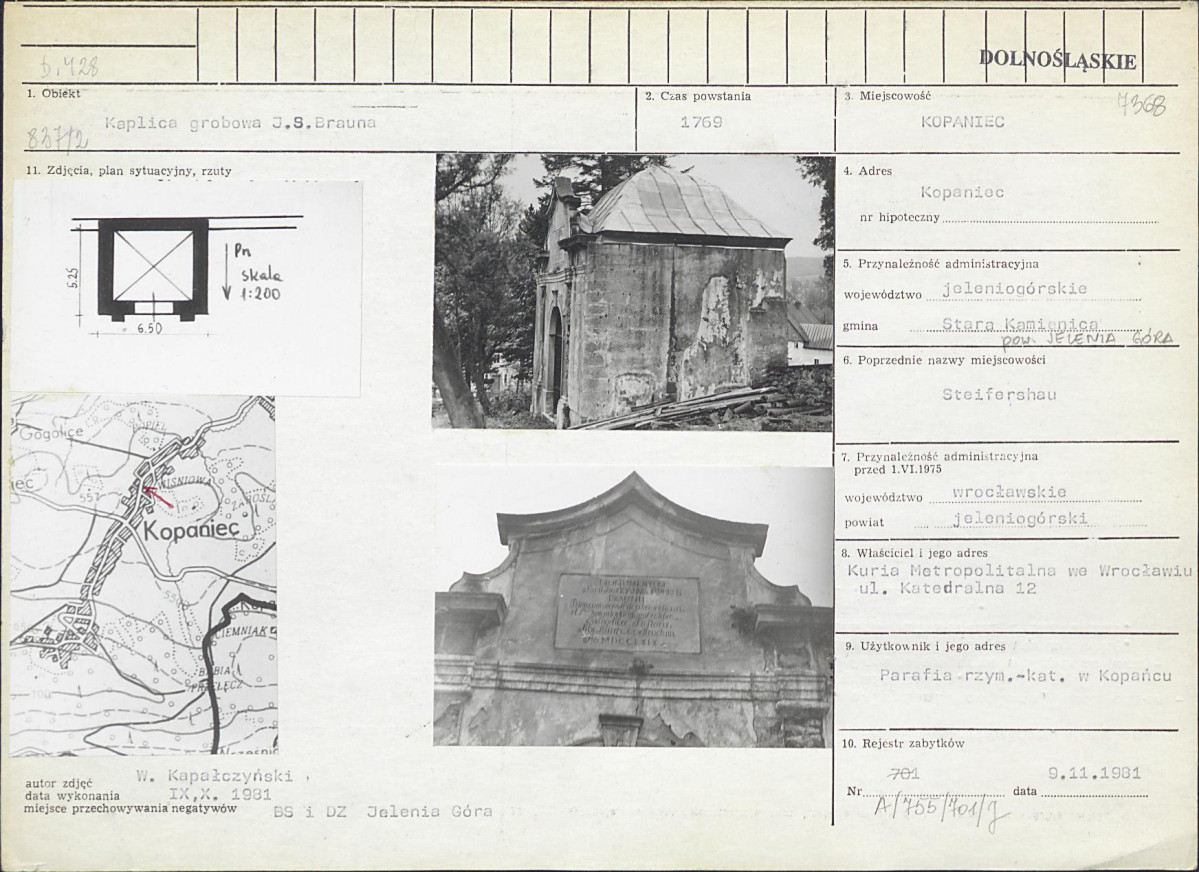 DOLNOŚLĄSKIE
b. 428
1. Obiekt
Kaplica grobowa J.S.Brauna
837/2
2. Czas powstania
1769
3. Miejscowość
7368
KOPANIEC
11. Zdjęcia, plan sytuacyjny, rzuty
5.25
6.50
Pn
skala
1:200
Gogolice
WIŚNIOWA
557
Kopaniec
CIEMNIAK
BABIA
PRZEŁĘCZ
MONUMENTUM
MDCCLXIX
4. Adres
Kopaniec
nr hipoteczny
5. Przynależność administracyjna
województwo jeleniogórskie
gmina Stara Kamienica
pow. JELENIA GÓRA
6. Poprzednie nazwy miejscowości
Steifershau
7. Przynależność administracyjna
przed 1.VI.1975
województwo wrocławskie
powiat jeleniogórski
8. Właściciel i jego adres
Kuria Metropolitalna we Wrocławiu
ul. Katedralna 12
9. Użytkownik i jego adres
Parafia rzym.-kat. w Kopańcu
10. Rejestr zabytków
701 9.11.1981
Nr data
A/755/701/J
autor zdjęć W. Kapałczyński
data wykonania IX,X. 1981
miejsce przechowywania negatywów BS i DZ Jelenia Góra